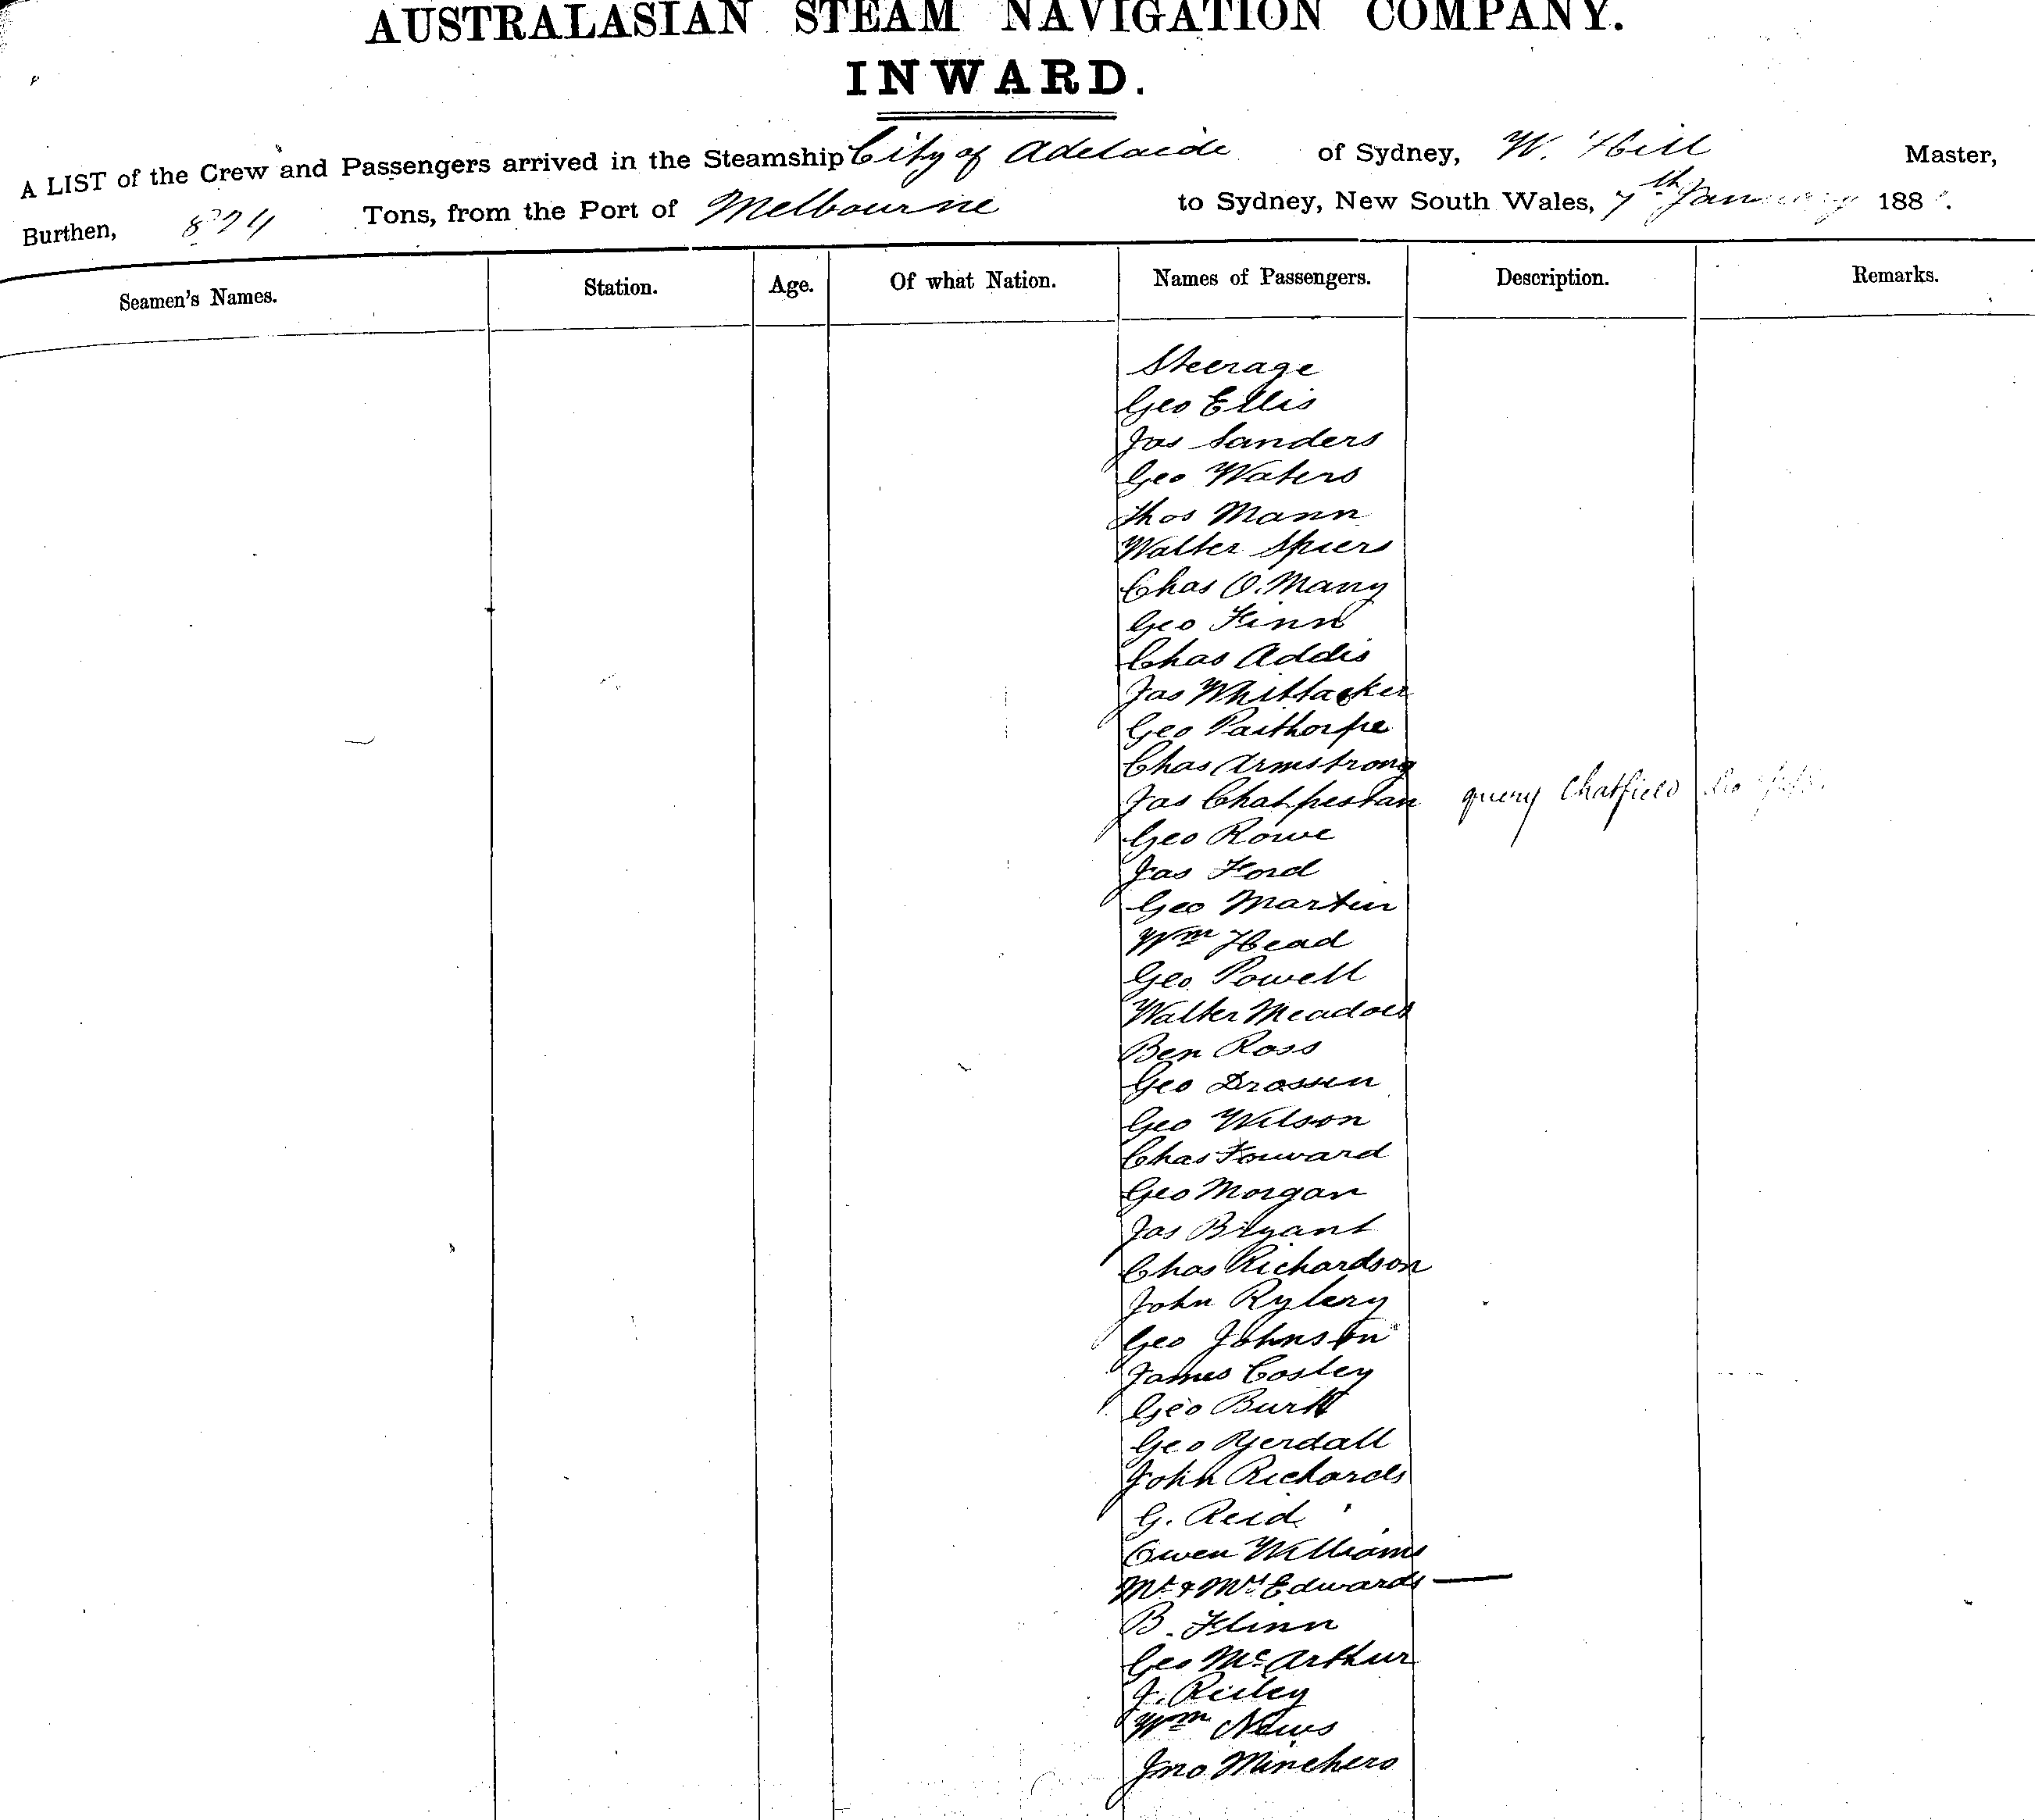 AUSTRALASIAN STEAM NAVIGATION COMPANY.
INWARD.
A LIST of the Crew and Passengers arrived in the Steamship City of Adelaide of Sydney, W. Hill Master,
Burthen, 824 Tons, from the Port of Melbourne to Sydney, New South Wales, 7th January 188
Seamen's Names. Station. Age. Of what Nation. Names of Passengers. Description. Remarks.
Steerage
Geo Ellis
Jas Sanders
Geo Waters
Thos Mann
Walter Spiers
Chas O. Many
Geo Finn
Chas Addis
Jas Whittacker
Geo Paithorpe
Chas Armstrong
Jas Chatpestan query Chatfield
Geo Rowe
Jas Ford
Geo Martin
Wm Head
Geo Powell
Walter Meadows
Ben Ross
Geo Drossen
Geo Wilson
Chas Forward
Geo Morgan
Jas Bryant
Chas Richardson
John Rylery
Geo Johnson
James Cosley
Geo Burtt
Geo Ryerdall
John Richards
G. Reid
Owen Williams
Mr & Mrs Edwards —
B. Flinn
Geo McArthur
J. Reiley
Wm News
Jno Minchero